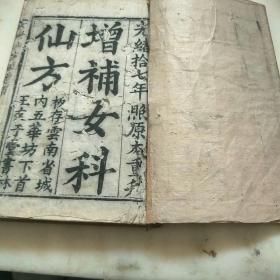 光緒拾七年照原本重刊
增補女科
仙方
板存雲南省城
內五華坊下首
王公子堂書林